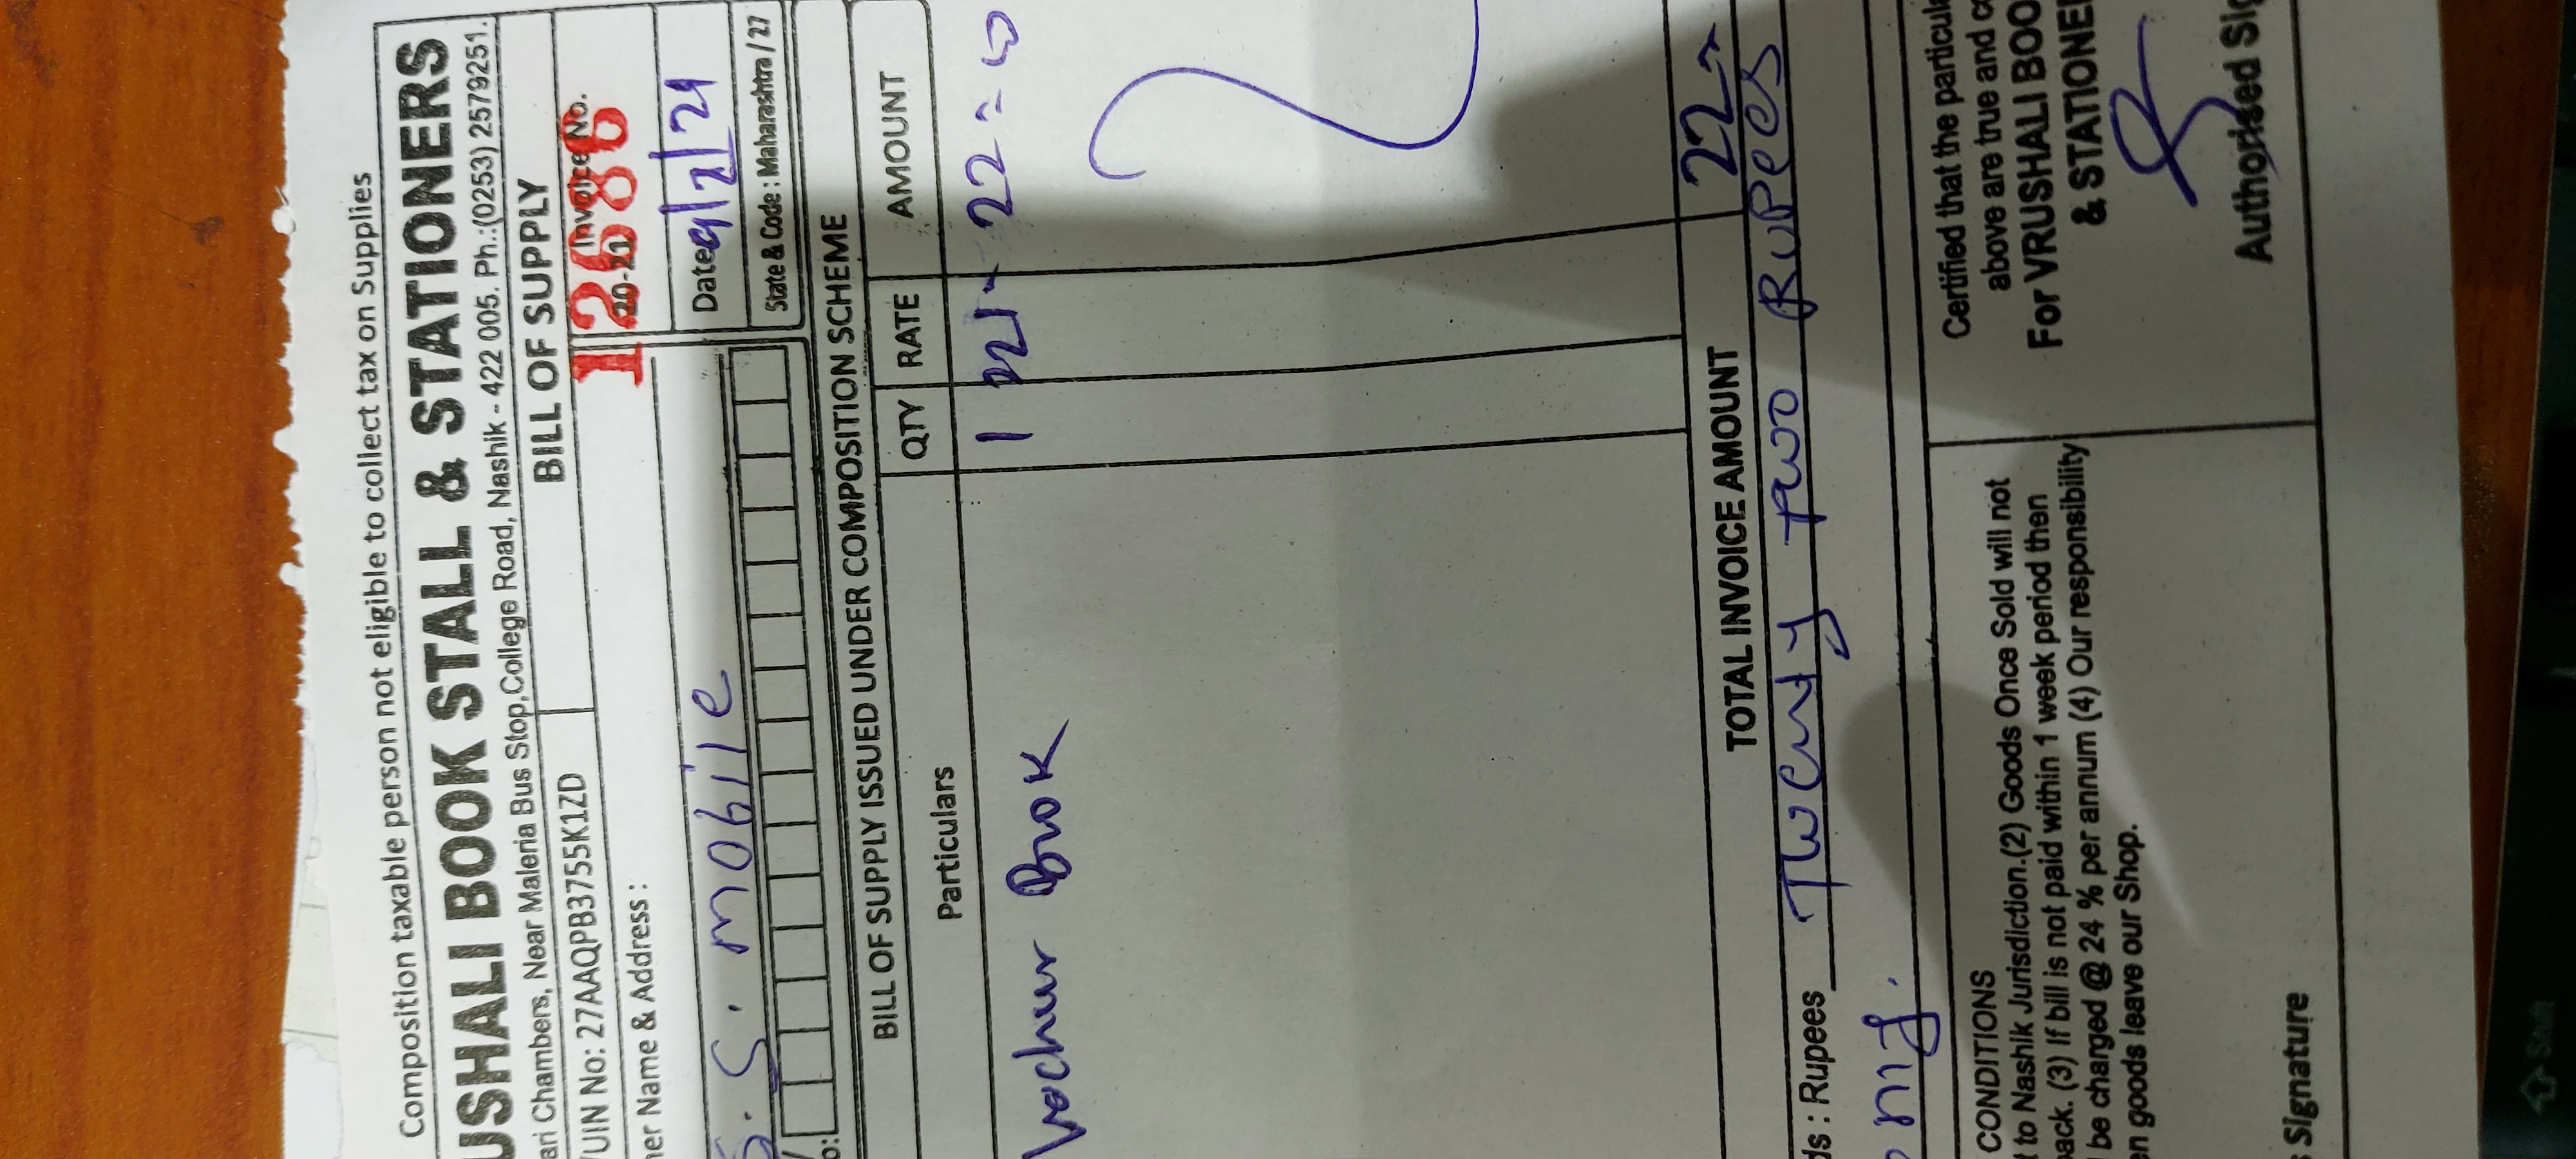 Composition taxable person not eligible to collect tax on Supplies
USHALI BOOK STALL & STATIONERS
ari Chambers, Near Maleria Bus Stop,College Road, Nashik - 422 005. Ph.:(0253) 2579251.
/UIN No: 27AAQPB3755K1ZD
BILL OF SUPPLY
Invoice No.
20-21
12686
ner Name & Address :
S. S. mobile
Date /21
State & Code : Maharashtra / 27
o:
BILL OF SUPPLY ISSUED UNDER COMPOSITION SCHEME
Particulars QTY RATE AMOUNT
Vochur Book 1 22/- 22=00
TOTAL INVOICE AMOUNT 22
ds : Rupees Twenty two Rupees
only.
CONDITIONS
t to Nashik Jurisdiction.(2) Goods Once Sold will not
back. (3) If bill is not paid within 1 week period then
l be charged @ 24 % per annum (4) Our responsibility
en goods leave our Shop.
s Signature
Certified that the particula
above are true and co
For VRUSHALI BOO
& STATIONE
Authorised Sig
Shift